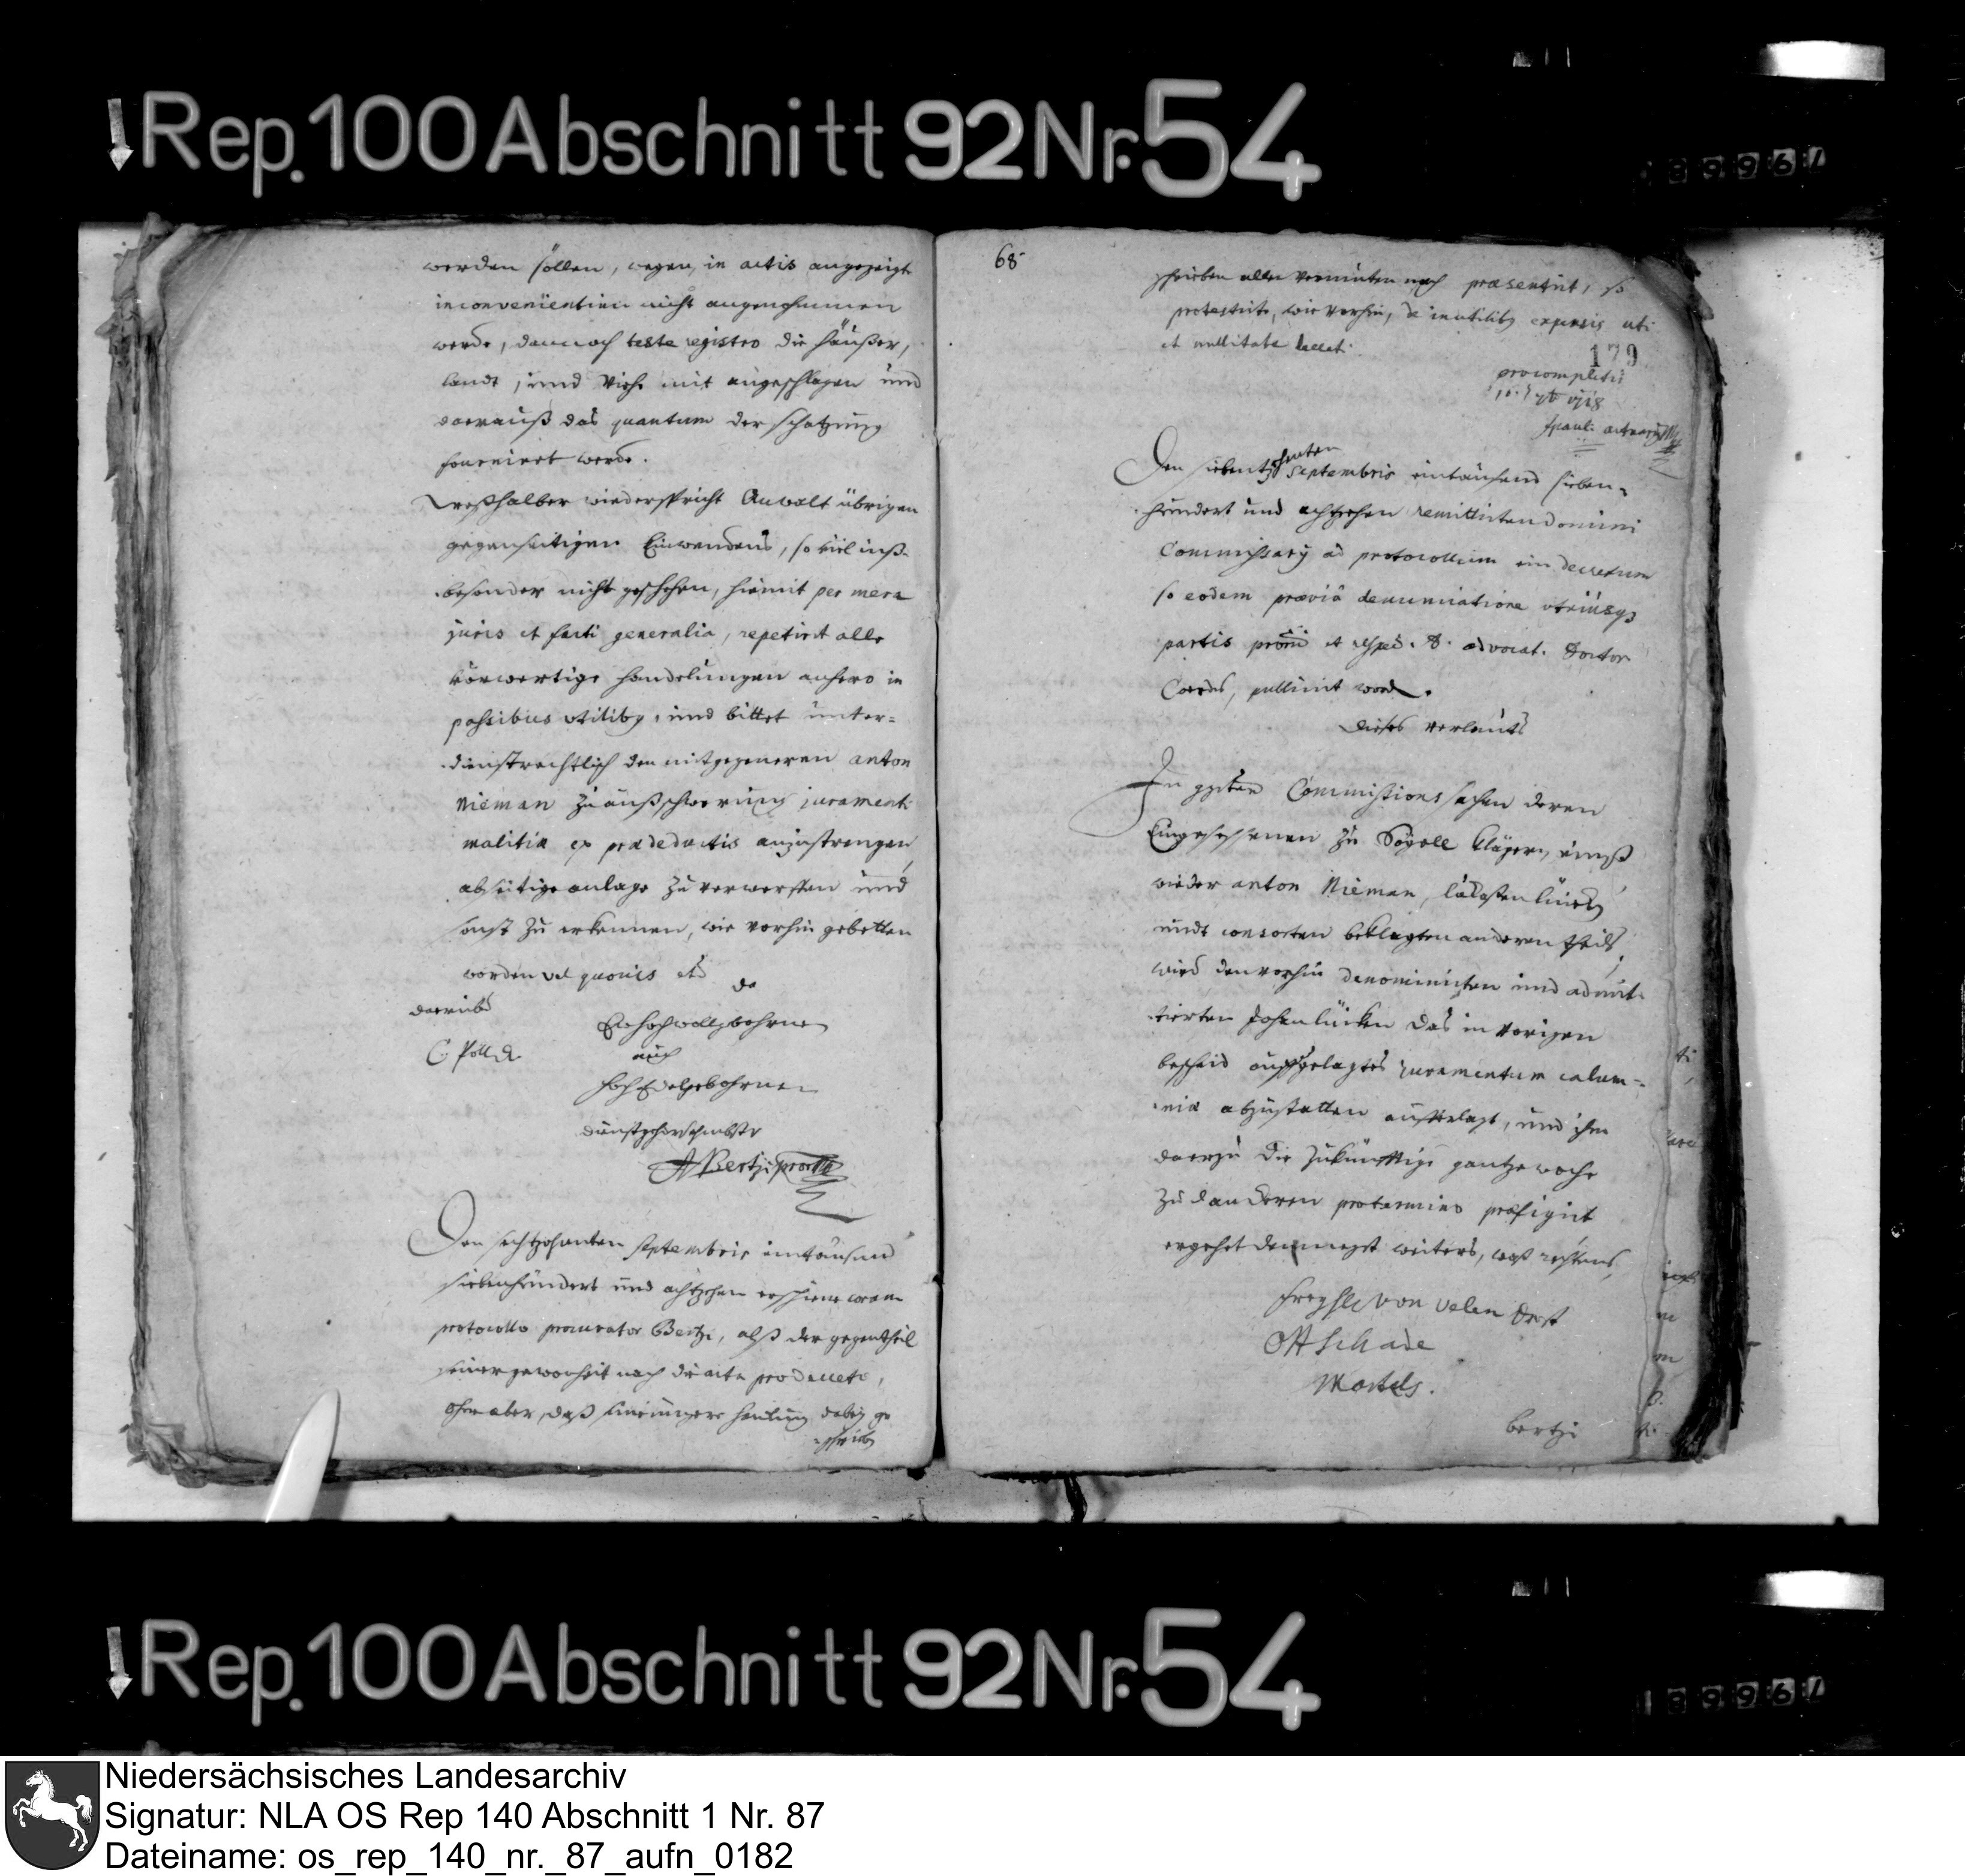 Rep. 100 Abschnitt 92 Nr. 54
werden söllen, wegen in actis angezeigte
inconvenientien nicht angenohmmen
werde, dannoch teste registro die häüßer,
landt, und Viehe mit angeschlagen und
darauß das quantum der schatzung
fourniert werde.
Weßhalber wiederspricht Anwalt übrigen
gegenseitigen Einwendens, so viel inß-
besonder nicht geschehen, hiemit per mera
juris et facti generalia, repetirt alle
vorwertige handelungen anhero in
passibus utilibq, und bittet unter-
dienstrechtlich den mitgegeneren anton
Nieman zu außschwerung juramenti
malitiæ ex prædeductis anzustrengen
abseitige anlage zu verwerffen und
sonst zu erkennen, wie vorhin gebetten
worden vel quovis
darüber
Ew hochwollgebohrne
auch
hochEdelgebohrnen
dienstgehorsambster
Bertzi
Den sechtzehenten septembris eintausend
siebenhundert und achtzehen erschiene coram
protocollo procurator Bertzi, alß der gegentheil
seiner gewonheit nach die acta producte,
ohne aber, daß seine
68
schrieben allen vermuten nach præsentirt, so
protestirte, wie vorhin, de inutilibq expensis uti
et nullitate
179
pro completi
Den siebentzehenten septembris eintausend sieben-
hundert und achtzehen remittirten Domini
Commissarij ad protocollum ein decretum
so eodem præviâ denunciatione utriusq
partis et advocat. Doctor
Cordes, publicirt word.
dieses verlauts
In Commissions sachen deren
Eingesessenen zu Sögell Klägern, einß
wieder anton Nieman,
undt consorten beklagten anderen theils
wird den vorhin denominirten und admit-
tierten Johan lücken das in vorigen
bescheid auffgelagtes juramentum calum-
niæ abzustatten aufferlagt, und ihm
darzu die zukünfftige gantze woche
zu dan deren pro termino præfigirt
ergehet demnegst weiters, waß rechtens,
von Velen
Schade
Martels.
bertzi
Rep. 100 Abschnitt 92 Nr. 54
Niedersächsisches Landesarchiv
Signatur: NLA OS Rep 140 Abschnitt 1 Nr. 87
Dateiname: os_rep_140_nr._87_aufn_0182